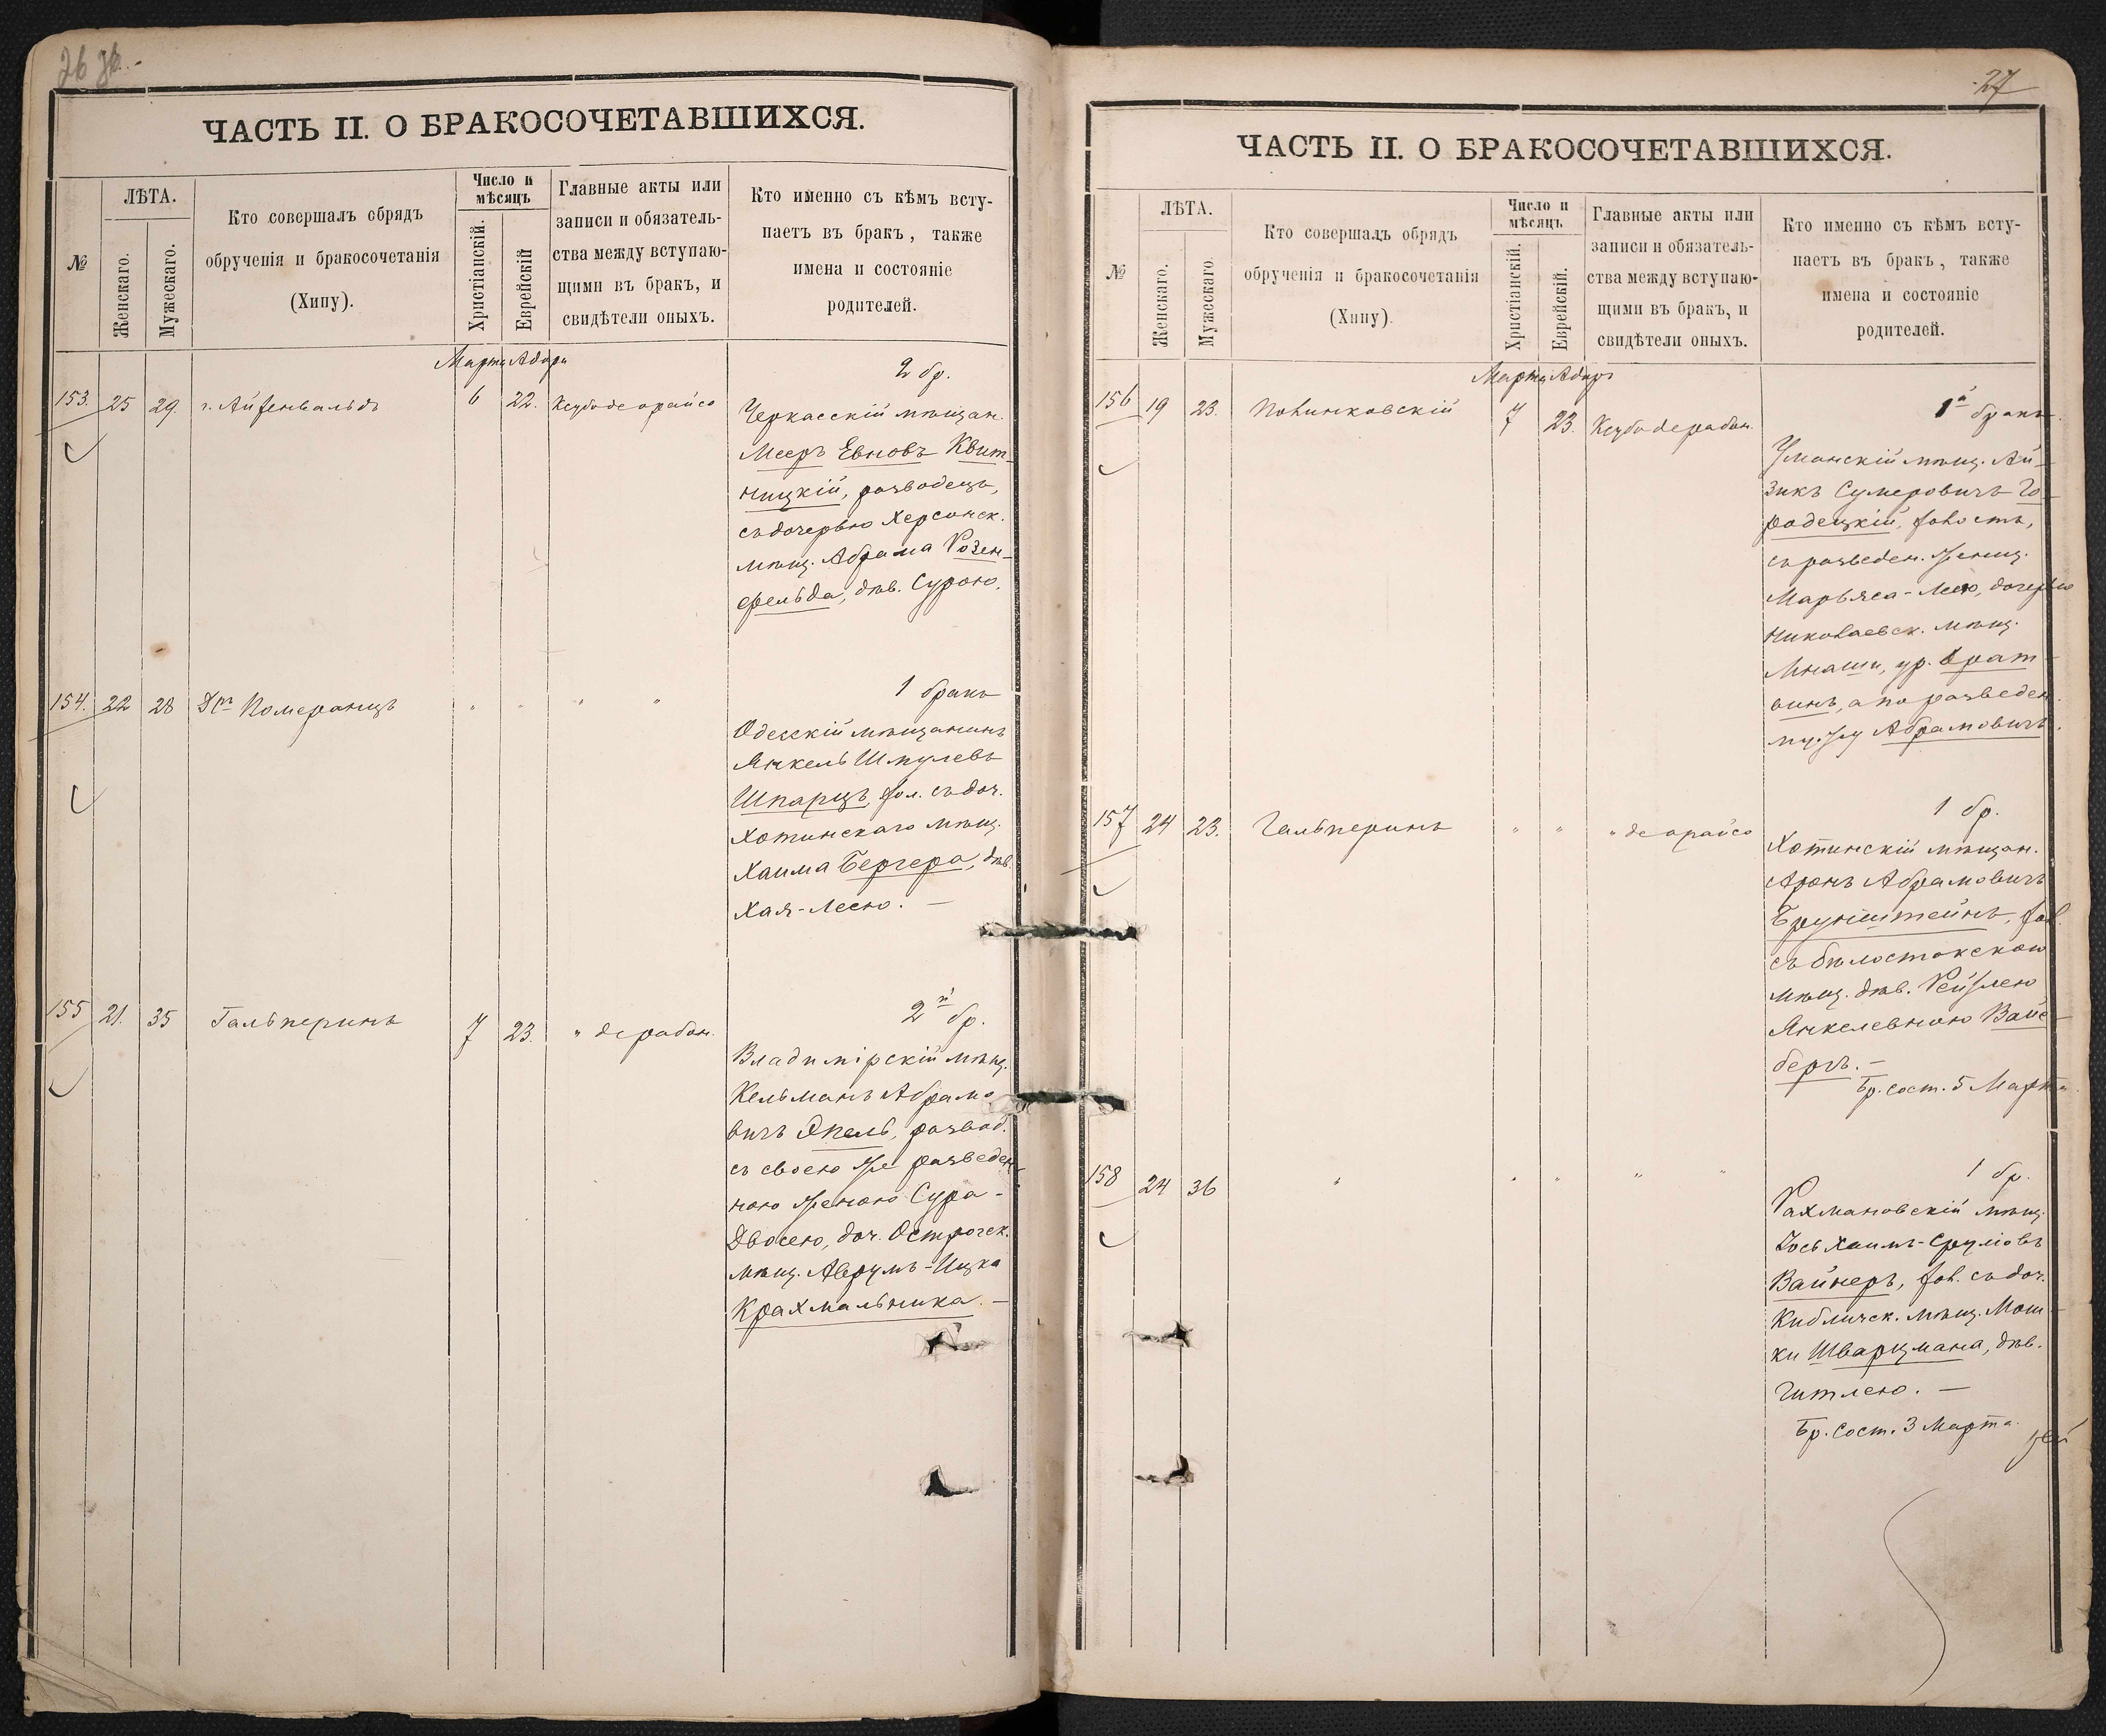 26 об.
ЧАСТЬ II. О БРАКОСОЧЕТАВШИХСЯ.
№
ЛѢТА.
Женскаго.
Мужескаго.
Кто совершалъ обрядъ
обрученія и бракосочетанія
(Хипу).
Число и
мѣсяцъ
Христіанскій.
Еврейскій
Главные акты или
записи и обязатель-
ства между вступаю-
щими въ бракъ, и
свидѣтели оныхъ.
Кто именно съ кѣмъ всту-
паетъ въ бракъ, также
имена и состояніе
родителей.
Марта Адара
153. 25 29. г. Айзенвальдъ 6 22. Ксубо деорайсо
2 бр.
Черкасскій мѣщан.
Мееръ Евновъ Квит-
ницкій, разводецъ,
съ дочерью Херсонск.
мѣщ. Абрама Розен-
фельда, дѣв. Сурою.
154. 22 28 Дръ Померанцъ " " " "
1 бракъ
Одесскій мѣщанинъ
Янкель Шмулевъ
Шпарцъ, хол. съ доч.
Хотинскаго мѣщ.
Хаима Бергера, дѣв.
Хая-Леею. —
155 21. 35 Гальперинъ 7 23. " де рабон.
2й бр.
Владимірскій мѣщ.
Кельманъ Абрамо
вичъ Апель, развод.
съ своею же разведен
ною женою Сура-
Двосею, доч. Острожск.
мѣщ. Аврумъ-Ицка
Крахмальника. —
27
ЧАСТЬ II. О БРАКОСОЧЕТАВШИХСЯ.
№
ЛѢТА.
Женскаго.
Мужескаго.
Кто совершалъ обрядъ
обрученія и бракосочетанія
(Хипу).
Число и
мѣсяцъ
Христіанскій.
Еврейскій.
Главные акты или
записи и обязатель-
ства между вступаю-
щими въ бракъ, и
свидѣтели оныхъ.
Кто именно съ кѣмъ всту-
паетъ въ бракъ, также
имена и состояніе
родителей.
Марта Адара
156 19 23. Полинковскій 7 23. Ксубо де рабон.
1й бракъ.
Уманскій мѣщ. Ай-
зикъ Сумеровичъ Го-
родецкій, холостъ,
съ разведен. женщ.
Марьяса-Леею, дочерью
Николаевск. мѣщ.
Мнаши, ур.
а по разведен.
мужу Абрамовичъ.
157 24 23. Гальперинъ " " " де орайсо
1 бр.
Хотинскій мѣщан.
Аронъ Абрамовичъ
Брунштейнъ, хол.
съ бѣлостокскою
мѣщ. дѣв. Рейзлею
Янкелевною Вайс-
бергъ. —
Бр. сост. 5 Марта
158 24 36 " " " " "
1 бр.
Рахмановскій мѣщ.
Іось Хаимъ-Сруліовъ
Вайнеръ, хол. съ доч.
Кибличск. мѣщ. Мош-
ки Шварцмана, дѣв.
Гитлею. —
Бр. сост. 3 Марта